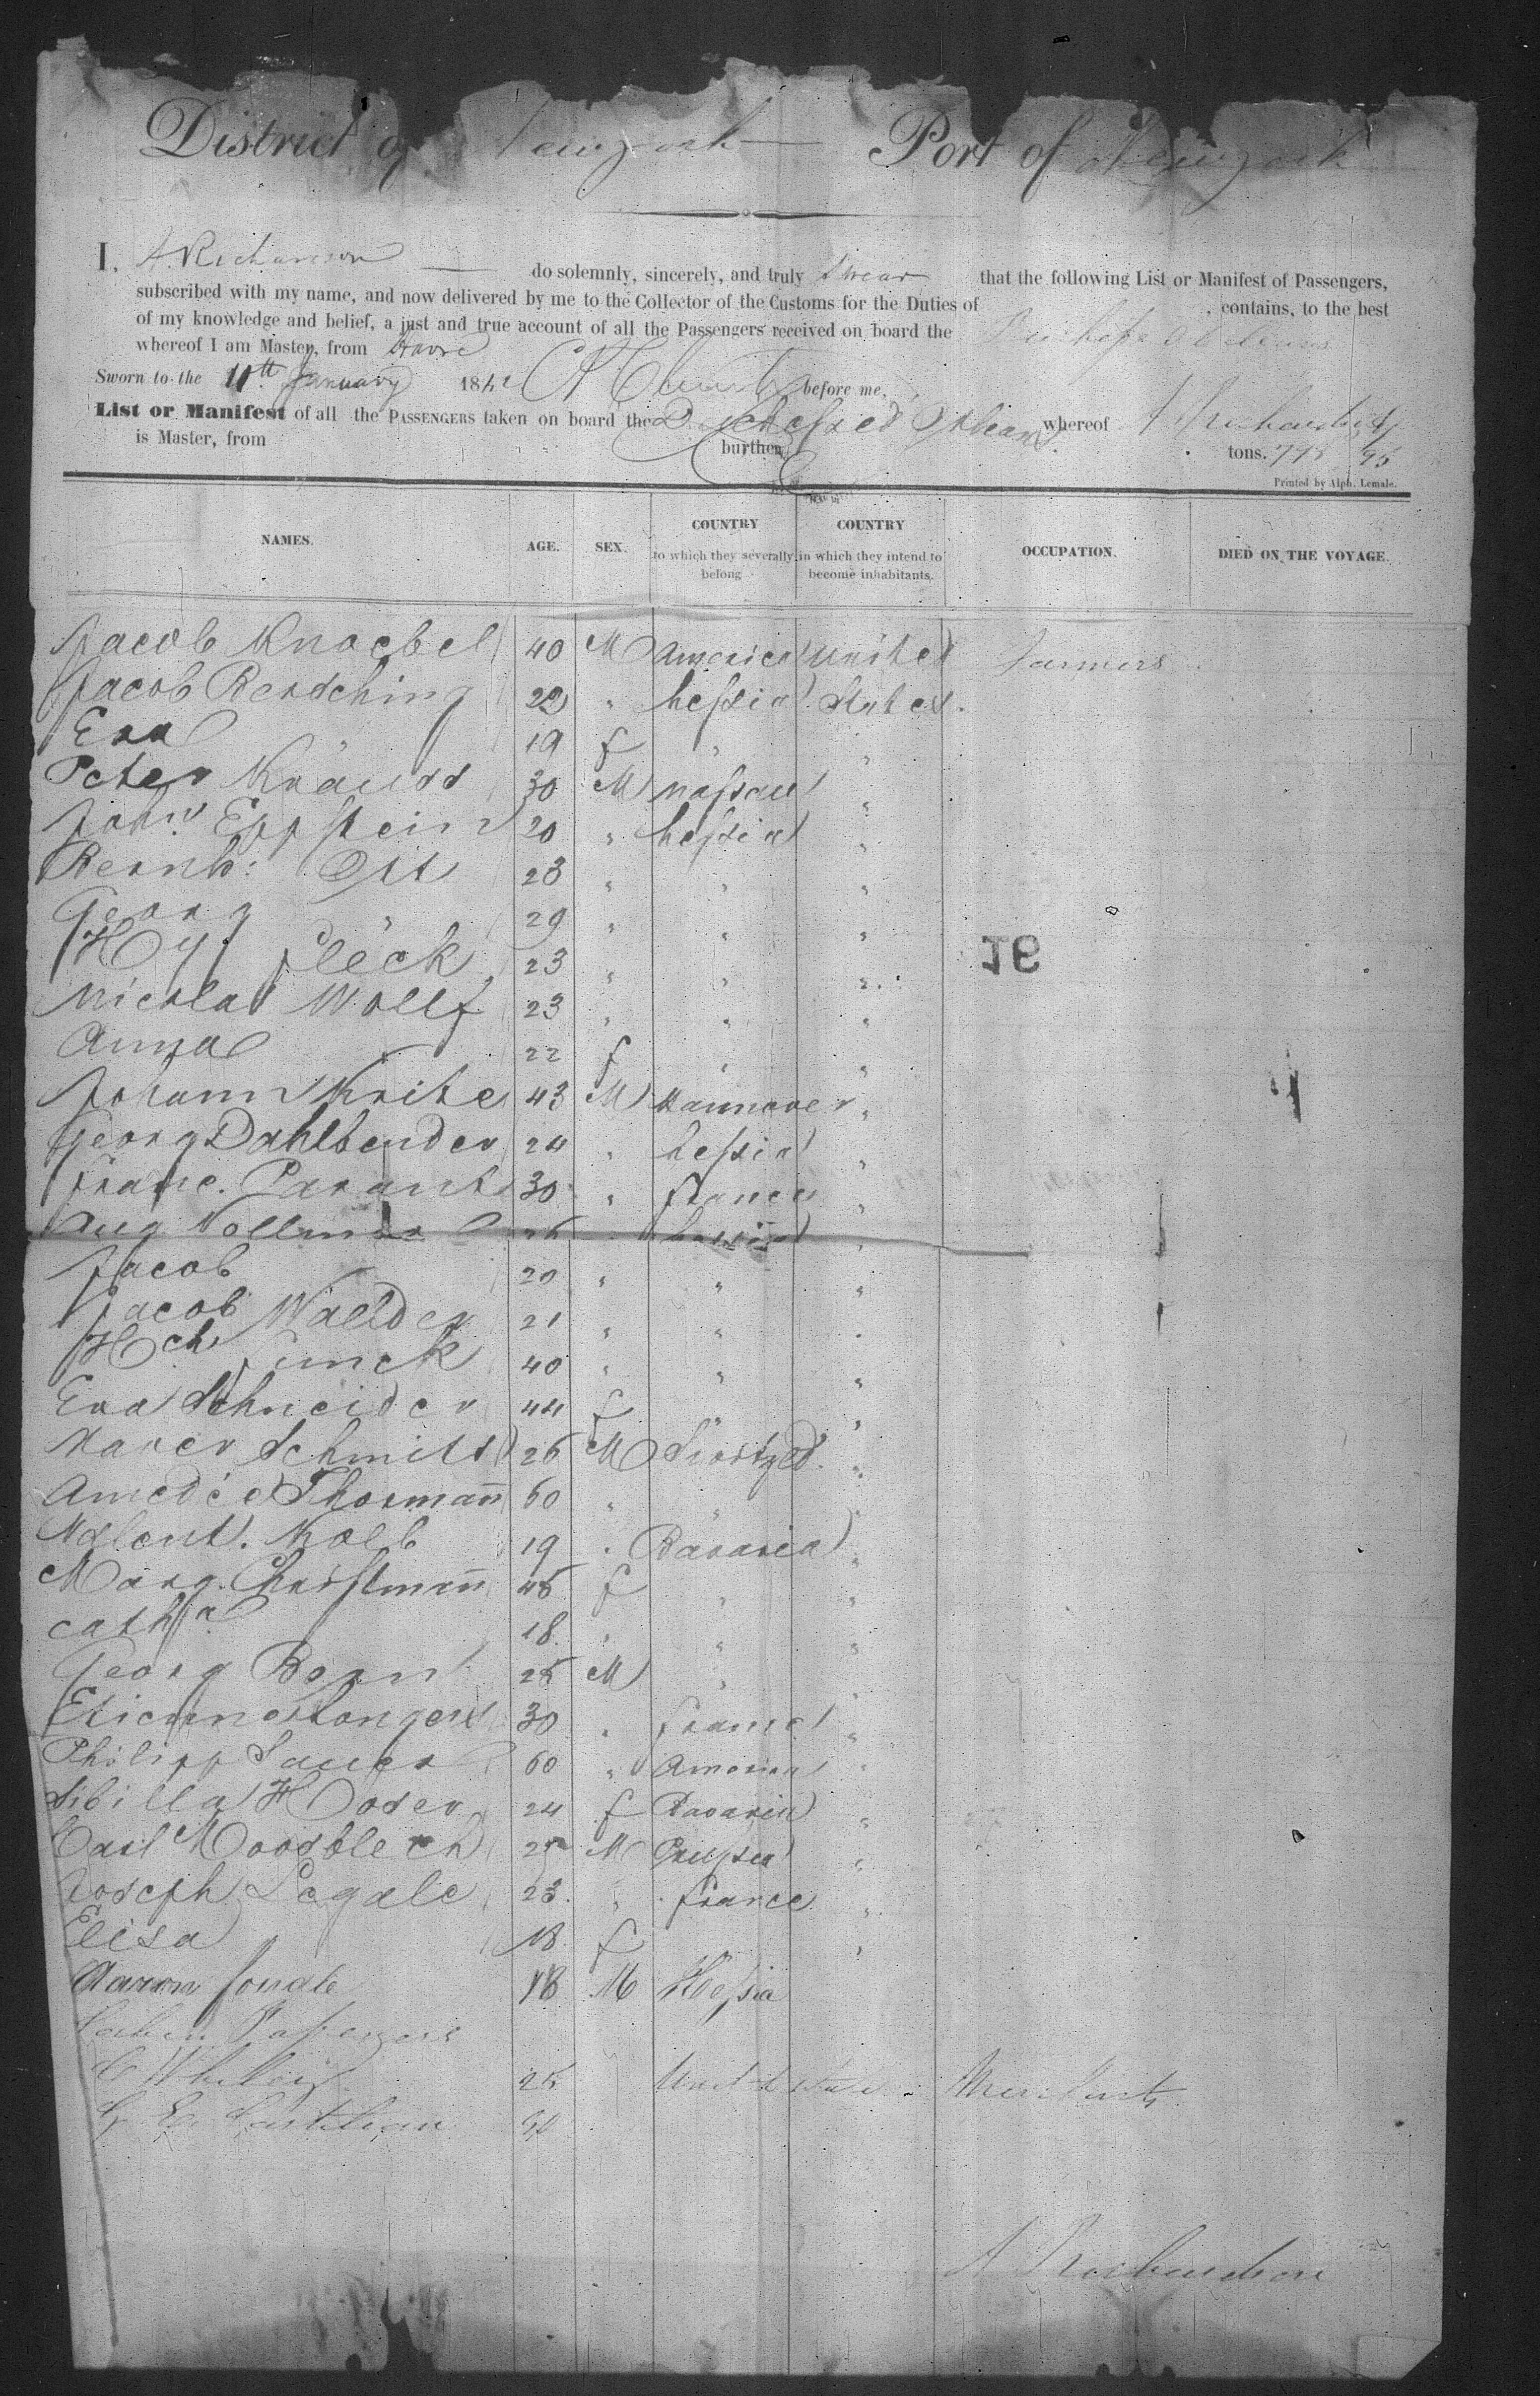 District of Newyork Port of Newyork
I, A Richardson do solemnly, sincerely, and truly swear that the following List or Manifest of Passengers,
subscribed with my name, and now delivered by me to the Collector of the Customs for the Duties of , contains, to the best
of my knowledge and belief, a just and true account of all the Passengers received on board the Duchesse d'Orleans
whereof I am Master, from Havre
Sworn to the 10th January 1842 before me,
List or Manifest of all the PASSENGERS taken on board the Duchesse d'Orleans whereof A Richardson
is Master, from burthen tons. 798 95
Printed by Alph. Lemale.
NAMES. AGE. SEX. COUNTRY to which they severally belong COUNTRY in which they intend to become inhabitants. OCCUPATION. DIED ON THE VOYAGE.
Jacob Knoebel 40 M America united farmers
Jacob Rersching 22 " hessia States.
Eva " 19 f " "
Peter Krauss 30 M nassau "
John Eppstein 20 " hessia "
Bernh: Ott 23 " " "
Georg " 29 " " "
Hy fleck 23 " " "
Nicolas Wollf 23 " " "
Anna 22 f " "
Johann Kreite 43 M Hannover "
Georg Dahlbender 24 " hessia "
franc. Parant 30 " france "
Aug Vollmer 26 " hessia "
Jacob 20 " " "
Jacob Waelder 21 " " "
Hch Junck 40 " " "
Eva Schneider 44 f " "
Xaver Schmitt 26 M Switzd. "
Amedée Thormann 60 " " "
Valent. Kolb 19 " Bavaria "
Marg. Christmann 45 f " "
Catha 18 " " "
Georg Born 25 M " "
Etienne Longers 30 " france "
Philipp Sauer 60 " America "
Sibilla Hoser 24 f Bavaria "
Carl Moosblech 25 M Prussia "
Joseph Legale 23 " france "
Elisa 18 f "
Aaron 18 M Hessia
Cabin Passengers
C Whitley 25 United States Merchants
A Richardson